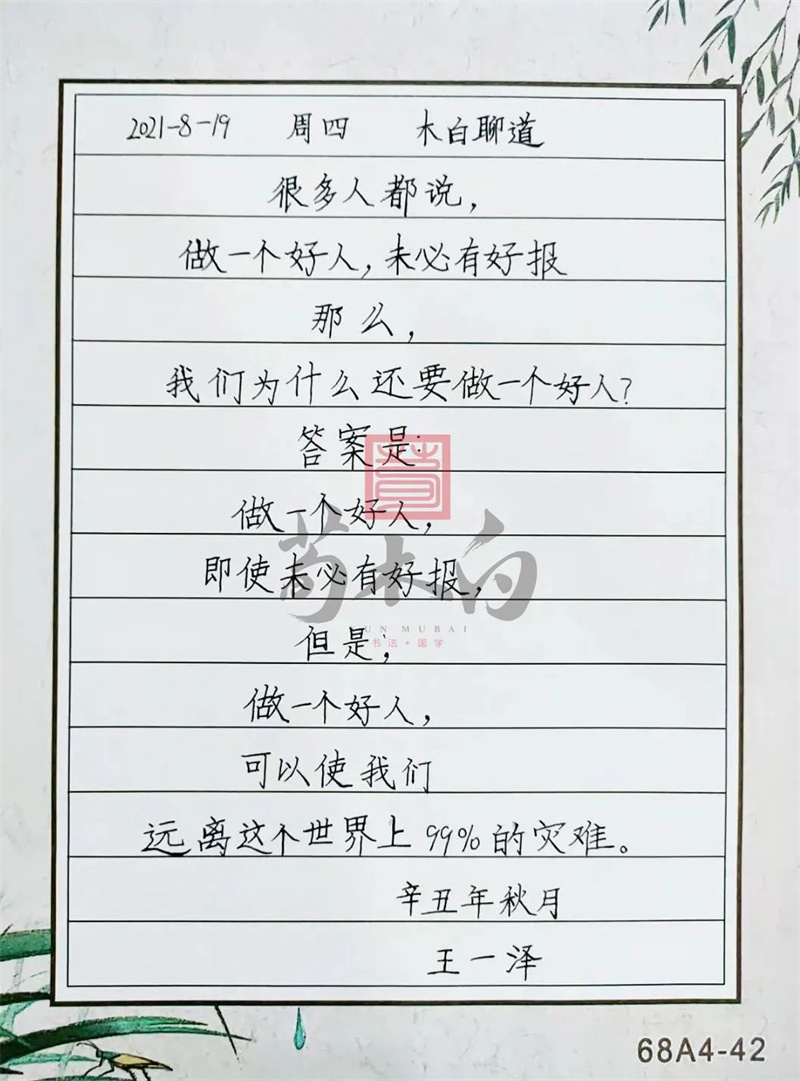 2021-8-19 周四 木白聊道
很多人都说，
做一个好人，未必有好报
那么，
我们为什么还要做一个好人？
答案是：
做一个好人，
即使未必有好报，
但是，
做一个好人，
可以使我们
远离这个世界上99%的灾难。
辛丑年秋月
王一泽
荀木白
XUN MUBAI
书法·国学
68A4-42